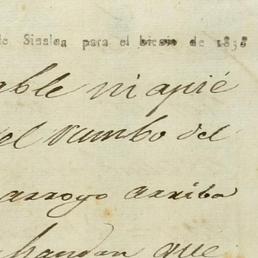 de Sinaloa para el bienio de 1838
able ni apié
el rumbo del
arroyo arriba
que